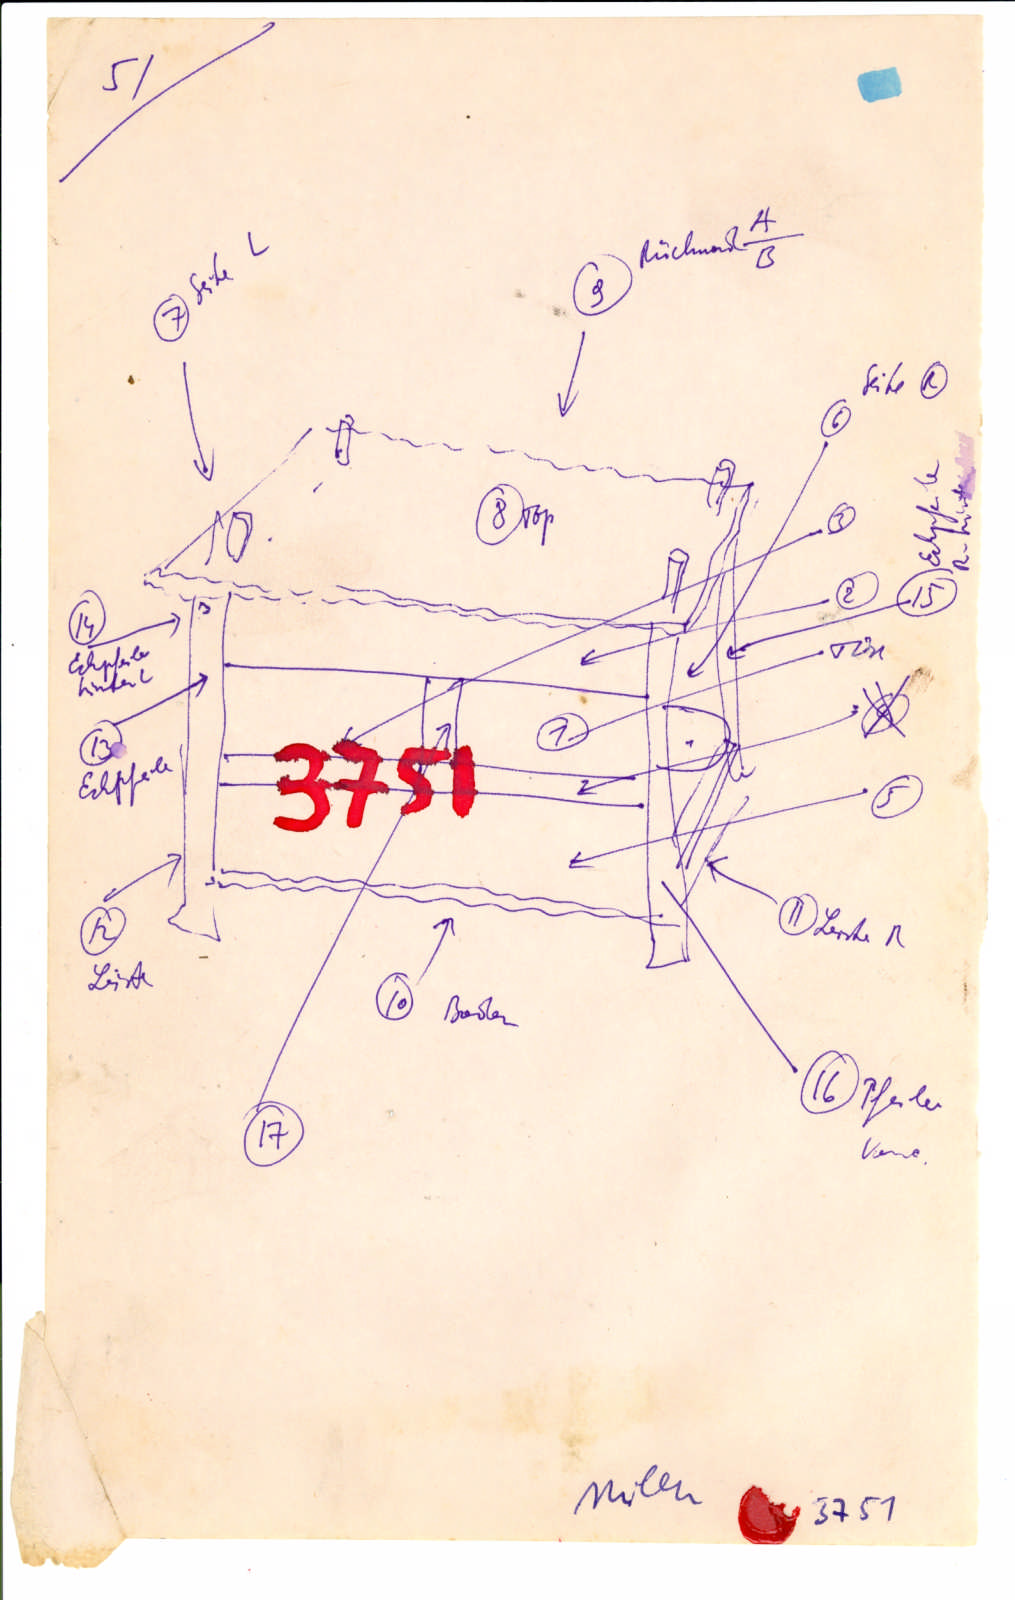 51
7 Seite L
9 Rückwand A
B
Seite R
6
8 Top
3
Eckpfeiler
R-hinten
2
15
14
Eckpfeiler
hinten L
Türe
1
13
Eckpfeiler
3751
5
12
Leiste
11 Leiste R
10 Boden
16 Pfeiler
Vorne.
17
3751